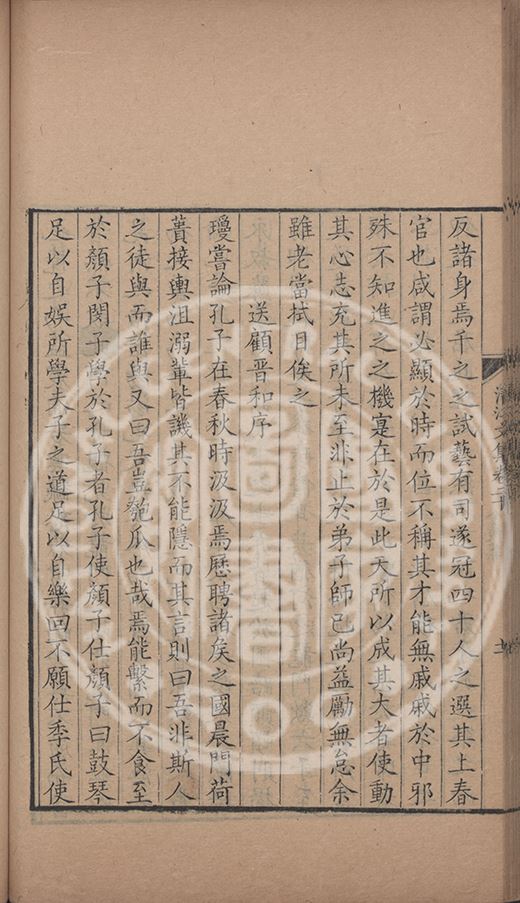 反諸身焉千之之試藝有司遂冠四十人之選其上春
官也咸謂必顯於時而位不稱其才能無戚戚於中邪
殊不知進之之機寔在於是此天所以成其大者使動
其心志充其所未至非止於弟子師已尚益勵無怠余
雖老當拭目俟之
送顧晋和序
瓊嘗論孔子在春秋時汲汲焉歷聘諸矦之國晨門荷
蕢接輿沮溺軰皆譏其不能隱而其言則曰吾非斯人
之徒與而誰與又曰吾豈匏瓜也哉焉能繫而不食至
於顏子閔子學於孔子者孔子使顏子仕顏子曰鼓琴
足以自娱所學夫子之道足以自樂回不願仕季氏使
清江文集卷二